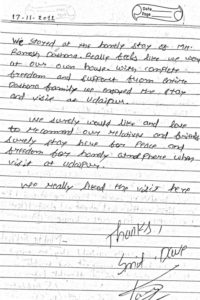 Date
Page
17-11-2011
We stayed at the homly stay of Mr.
Ramesh Dashora. Really feels like we were
at our own house. With complete
freedom and support from entire
Dashora family we enjoyed the stay
and visit at Udaipur.
We surely would like and love
to recommend our relatives and friends
surely stay here for peace and
freedom for homly atmosphere when
visit at Udaipur.
We really liked the visit here
Thanks,
Smd. Dave